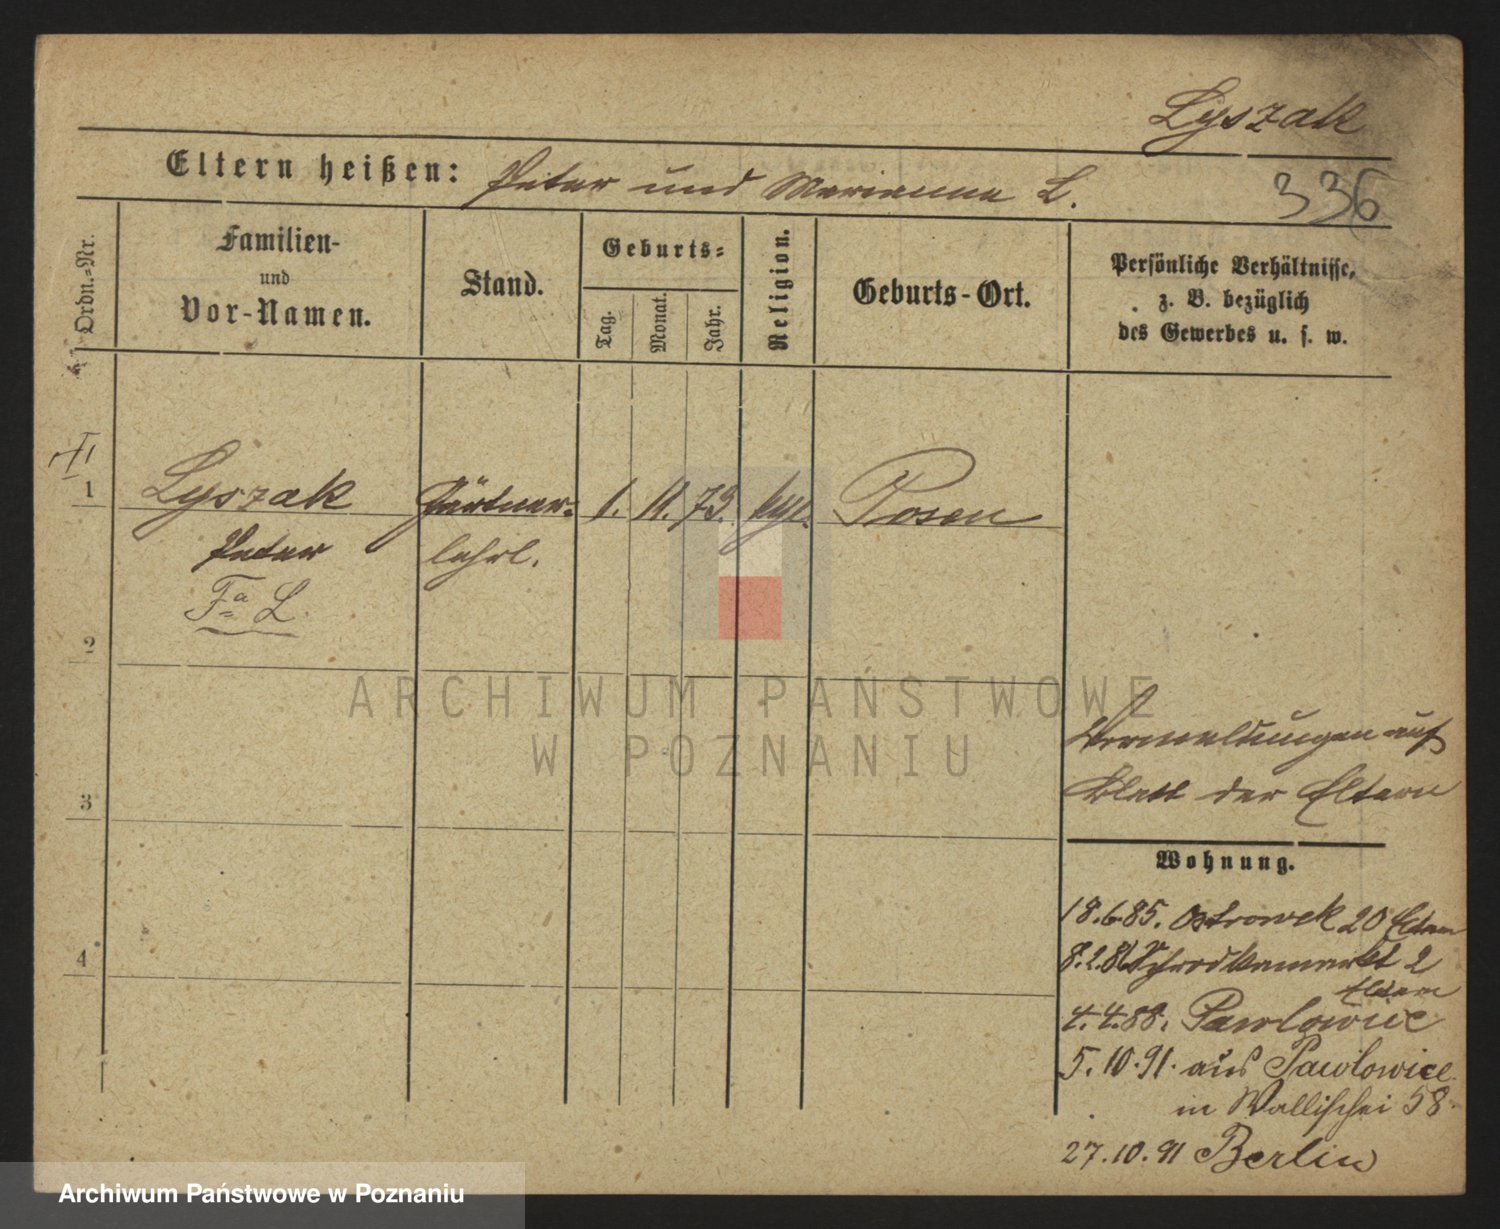 Lyszak
Eltern heißen: Peter und Marianna L.
336
Ordn.-Nr.
Familien-
und
Vor-Namen.
Stand.
Geburts-
Tag.
Monat.
Jahr.
Religion.
Geburts-Ort.
Persönliche Verhältnisse,
z. B. bezüglich
des Gewerbes u. s. w.
1 Lyszak Gärtner- 1. 11. 73. Posen
Peter lehrl.
Fa L.
2
3
4
Vermeldungen auf
Blatt der Eltern
Wohnung.
18.6.85. Ostrowek 20 Eltern
8.2.86 Schrodkamarkt 2
Eltern
4.4.88. Pawlowice
5.10.91. aus Pawlowice
in Wallischei 58
27.10.91 Berlin
ARCHIWUM PAŃSTWOWE
W POZNANIU
Archiwum Państwowe w Poznaniu